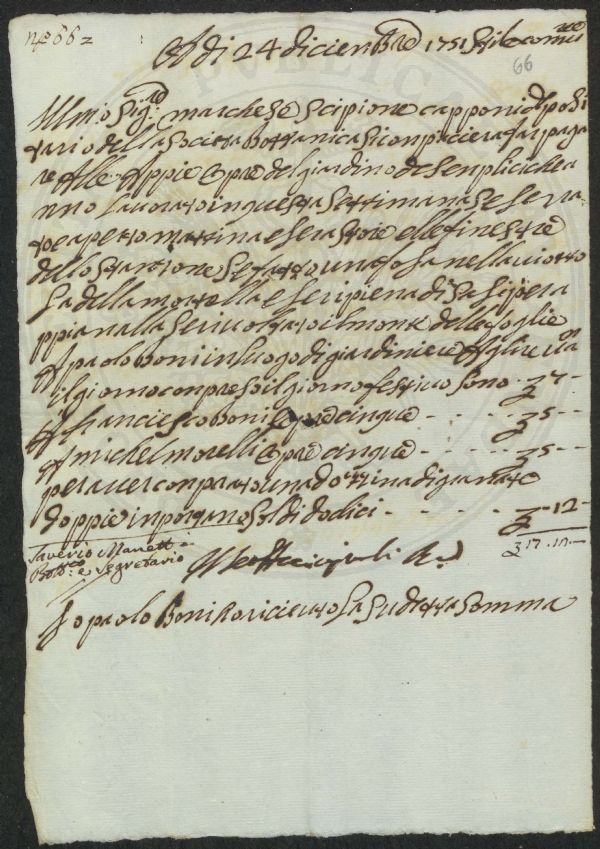 N.º 662
Adi 24 dicienbre 1751 stile comune
66
Ill.mo Sig.re marchese Scipione capponi dposi
tario della Societa bottanica si conpiacera far paga
re alle appie opre del giardino de senplici che a
nno lavorato in questa settimana se serra
to e aperto mattina e sera stoie e lle finestre
dello stanzone se fatto una fossa nella
sa della mortella e se ripiena di
ppia nalla se rivoltato il monte delle foglie
A paolo boni in luogo di giardiniere A
il giorno conpreso il giorno festivo sono - - 7 - -
A franciesco boni opre cinque - - - - 5 - -
A michel morelli opre cinque - - - - 5 - -
per aver conprato una dozzina di granate
doppie inportano soldi dodici - - - - - 12 - -
17.12.--
Saverio Manetti
Bott.co e Segretario
Io paolo boni o ricieuto la sudetta somma